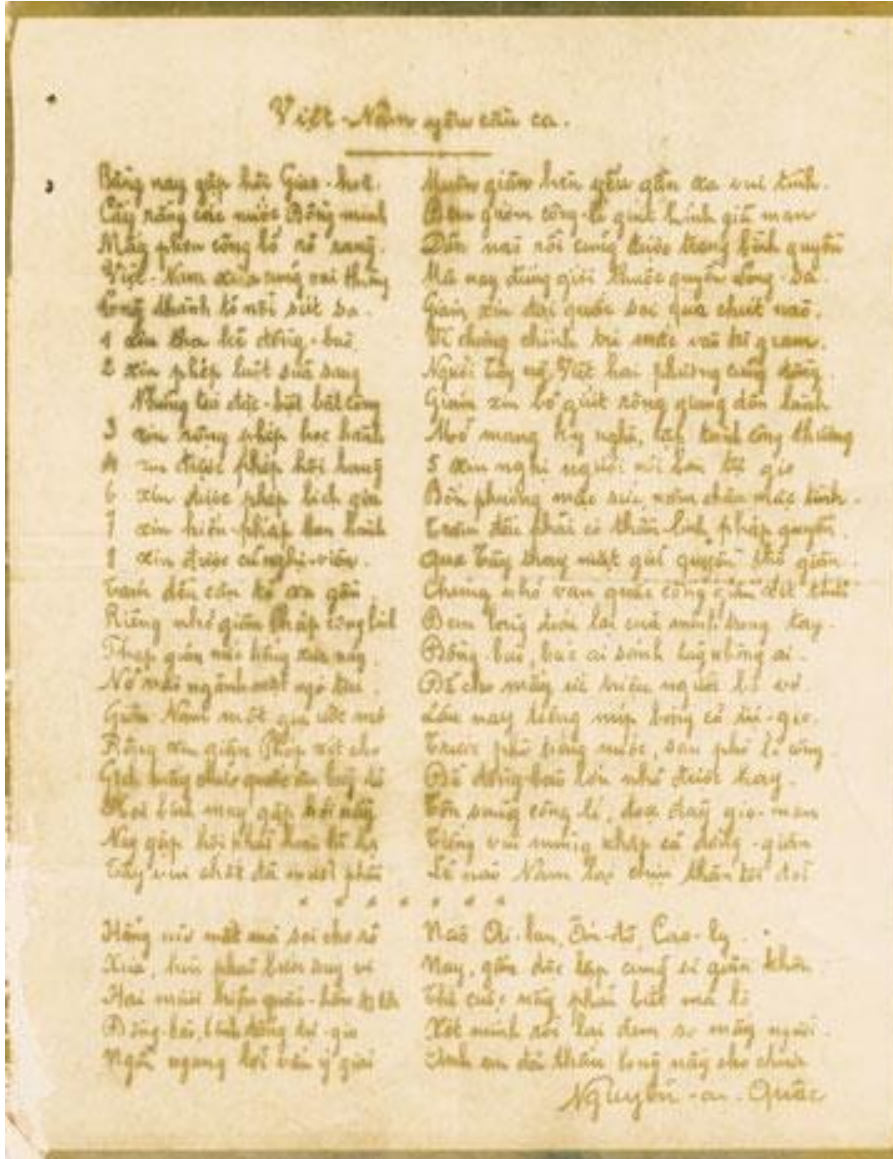 Việt-Nam yêu cầu ca.
Bằng nay gặp hội Giao-hoà. Muôn giân hèn yếu gần xa vui tình.
Cậy rằng các nước Đồng minh Đem gươm công-lí giứt hình giã man
Mấy phen công bố rõ ràng. Dân nào rồi cũng được trang bình quyền
Việt-Nam xưa cũng oai thiêng Mà nay đứng giới thuộc quyền Lang-sa.
Lòng thành tỏ nỗi sút sa. Giám xin đại quốc soi qua chút nào.
1 xin tha kẻ đồng-bào Vì chưng chính trị mắc vào tù giam.
2 xin phép luật sửa sang Người Tây người Việt hai phương cùng đồng.
Những toà đặc-biệt bất công Giám xin bỏ giứt rộng giung dân lành
3 xin rộng phép học hành Mở mang kỹ nghệ, lập tành công thương
4 xin được phép hội hàng 5 xin nghĩ ngợi nói bàn tự gio
6 xin được phép lịch gio Bốn phương mặc sức năm châu mặc tình.
7 xin hiến-pháp ban hành Trăm đều phải có thần linh pháp quyền
8 xin được cử nghị-viên. Qua Tây thay mặt giải quyền thuộc giân.
Tám đều cạn tỏ xa gần Chứng nhờ vạn quốc công giân xét tình
Riêng nhờ giân Pháp công bình Đem lòng đoái lại của mình trong tay.
Pháp giân nức tiếng xưa nay. Đồng-bào, bác ái sánh tày không ai.
Nỡ nào ngảnh mặt ngơ tai. Để cho mấy ức triệu người bơ vơ
Giân Nam một giạ ước mơ Lâu nay tiếng núp bóng cờ tự-gio.
Rộng xin giân Pháp xét cho Trước phò tiếng nước, sau phò lẽ công
Gịch mấy chữ quốc âm bày tỏ Để đồng-bào lớn nhỏ được hay.
Hoà bình may gặp hội nầy Tôn sùng công lí, đoạ đày giã-man
Nay gặp hội khải hoàn hỉ hạ Tiếng vui mừng khắp cả đồng-giân
Tây vui chắt đã mười phân Lẽ nào Nam lại chịu thân tôi đòi
Hãy mở mắt mà soi cho rõ Nào Ai-lan, Ấn-độ, Cao-ly.
Xưa, hèn phải bước suy vi Nay, gần độc lập cũng vì giân khôn.
Hai mươi triệu quốc-hồn Thế cuộc nầy phải biết mà lo
Đồng-bào, bình đẳng tự-gio Xét mình rồi lại đem so mấy người.
Ngổn ngang lời vắn ý giài Anh em đã thấu lòng nầy cho chưa
Nguyễn-ái-Quốc